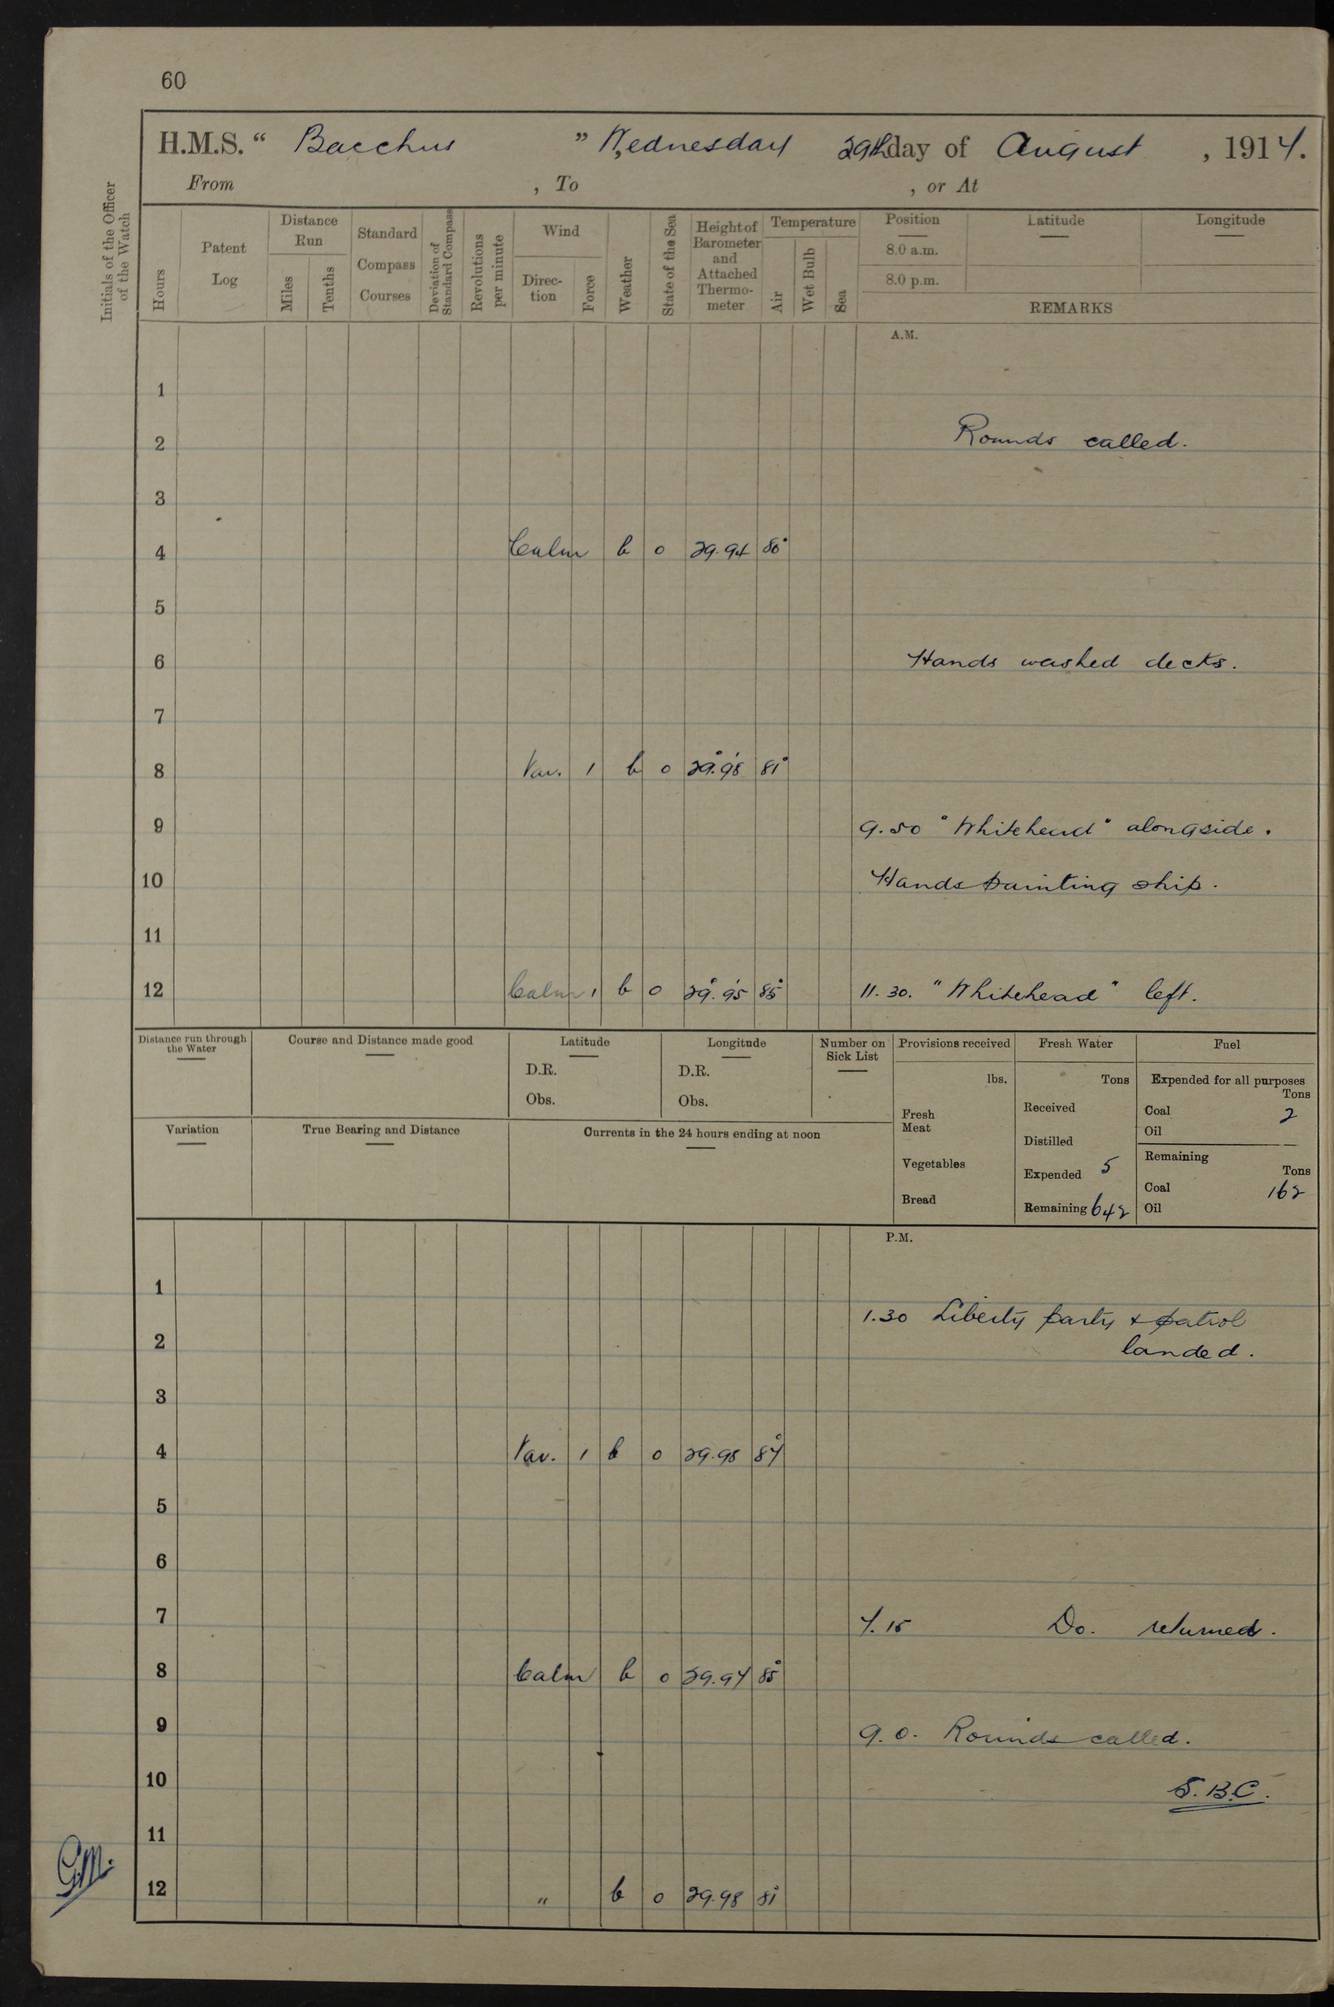 60
H.M.S. “ Bacchus ” Wednesday 29th day of August , 1917.
From , To , or At
Initials of the Officer of the Watch
Hours
Patent Log
Distance Run
Miles
Tenths
Standard Compass Courses
Deviation of Standard Compass
Revolutions per minute
Wind
Direc- tion
Force
Weather
State of the Sea
Height of Barometer and Attached Thermo- meter
Temperature
Air
Wet Bulb
Sea
Position Latitude Longitude
8.0 a.m.
8.0 p.m.
REMARKS
A.M.
1
2 Rounds called.
3
4 Calm b 0 29.94 80°
5
6 Hands washed decks.
7
8 Var. 1 b 0 29.98 81°
9 9.50 "Whitehead" alongside.
10 Hands painting ship.
11
12 Calm b 0 29.95 85° 11.30. "Whitehead" left.
Distance run through the Water
Course and Distance made good
Latitude
D.R.
Obs.
Longitude
D.R.
Obs.
Number on Sick List
Provisions received
lbs.
Fresh Meat
Vegetables
Bread
Fresh Water
Tons
Received
Distilled
Expended 5
Remaining 642
Fuel
Expended for all purposes
Tons
Coal 2
Oil
Remaining
Tons
Coal 162
Oil
Variation
True Bearing and Distance
Currents in the 24 hours ending at noon
P.M.
1
1.30 Liberty party & patrol
2 landed.
3
4 Var. 1 b 0 29.98 87°
5
6
7 7.15 Do. returned.
8 Calm b 0 29.97 85°
9 9.0. Rounds called.
10 S.B.C.
11
G.M.
12 " b 0 29.98 81°